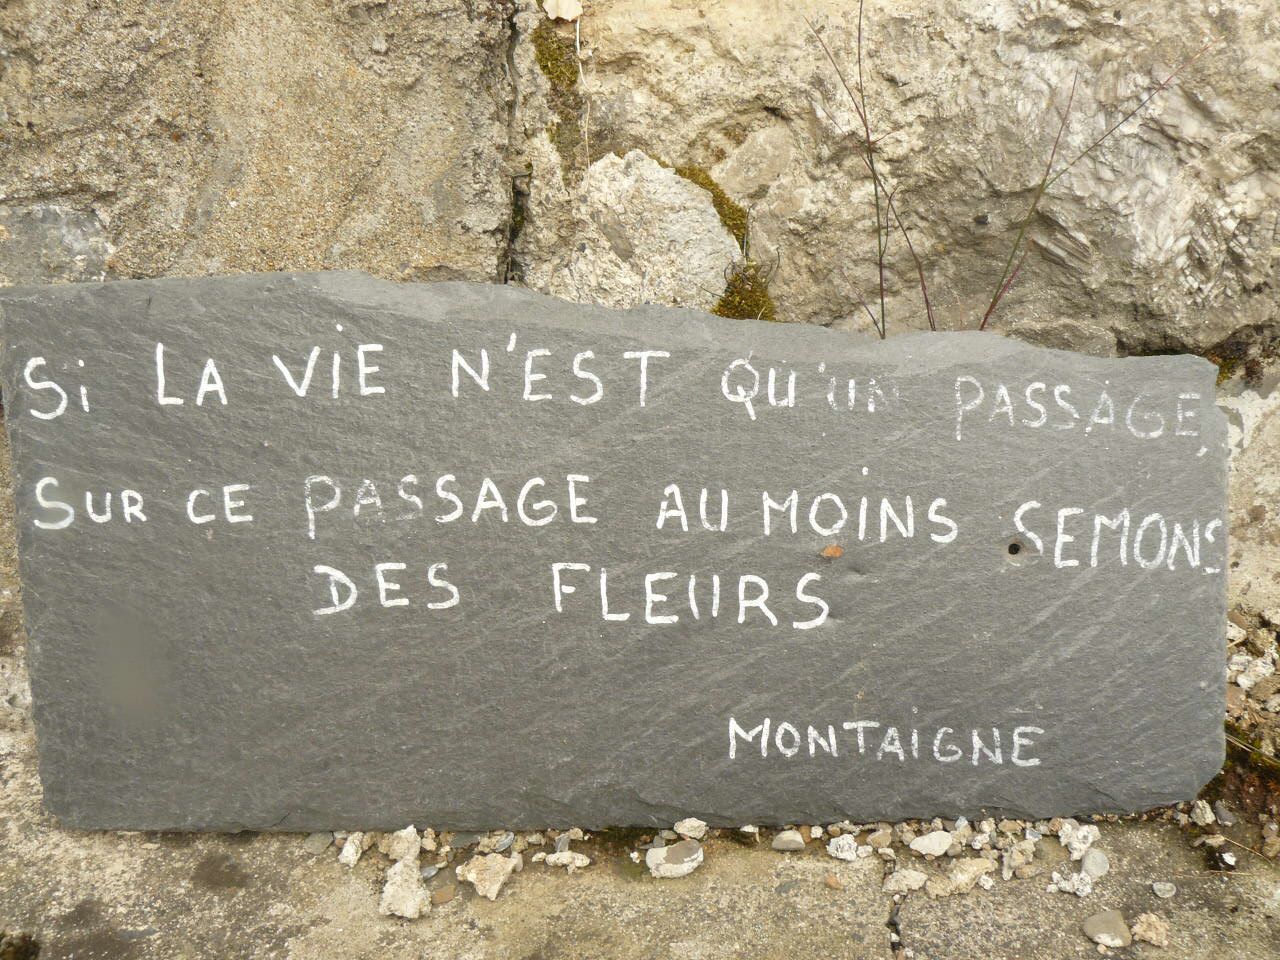 Si LA ViE N'EST QU'UN PASSAGE,
SUR CE PASSAGE AU MOiNS SEMONS
DES FLEURS
MONTAiGNE